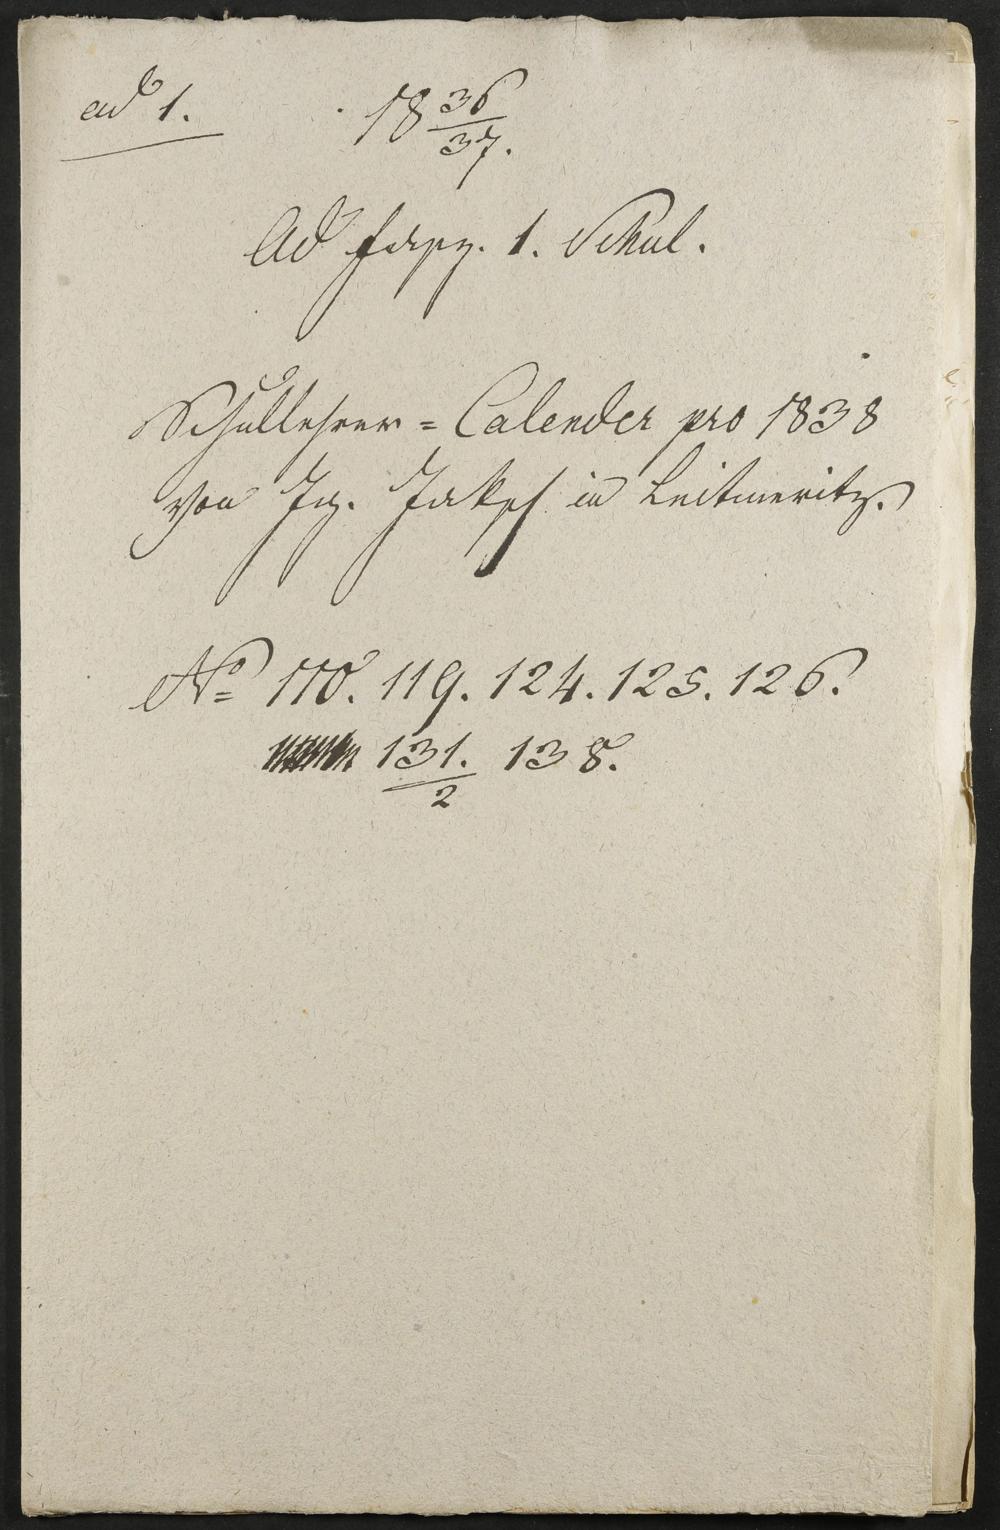 ad 1.
18 36/37.
Ad fasz. 1. Schul.
Schullehrer = Calender pro 1838
von Ig. Jaksch in Leitmeritz.
No 110. 119. 124. 125. 126.
131./2 138.